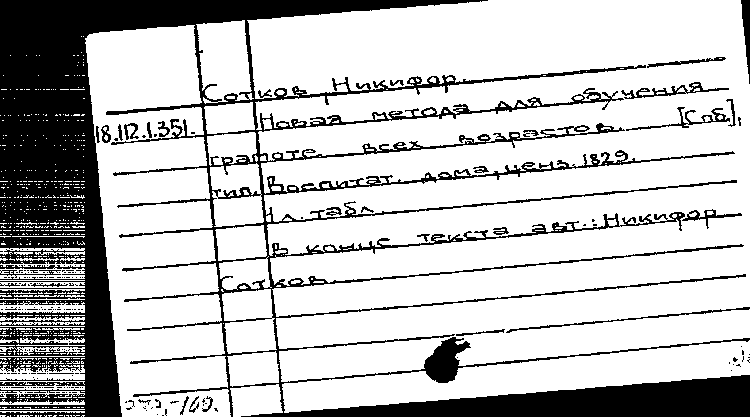 Сотков, Никифор.
18.112.1.351. Новая метода для обучения
грамоте всех возрастов. [Спб],
тип. Воспитат. дома, ценз. 1829.
1 л. табл.
В конце текста авт.: Никифор
Сотков.